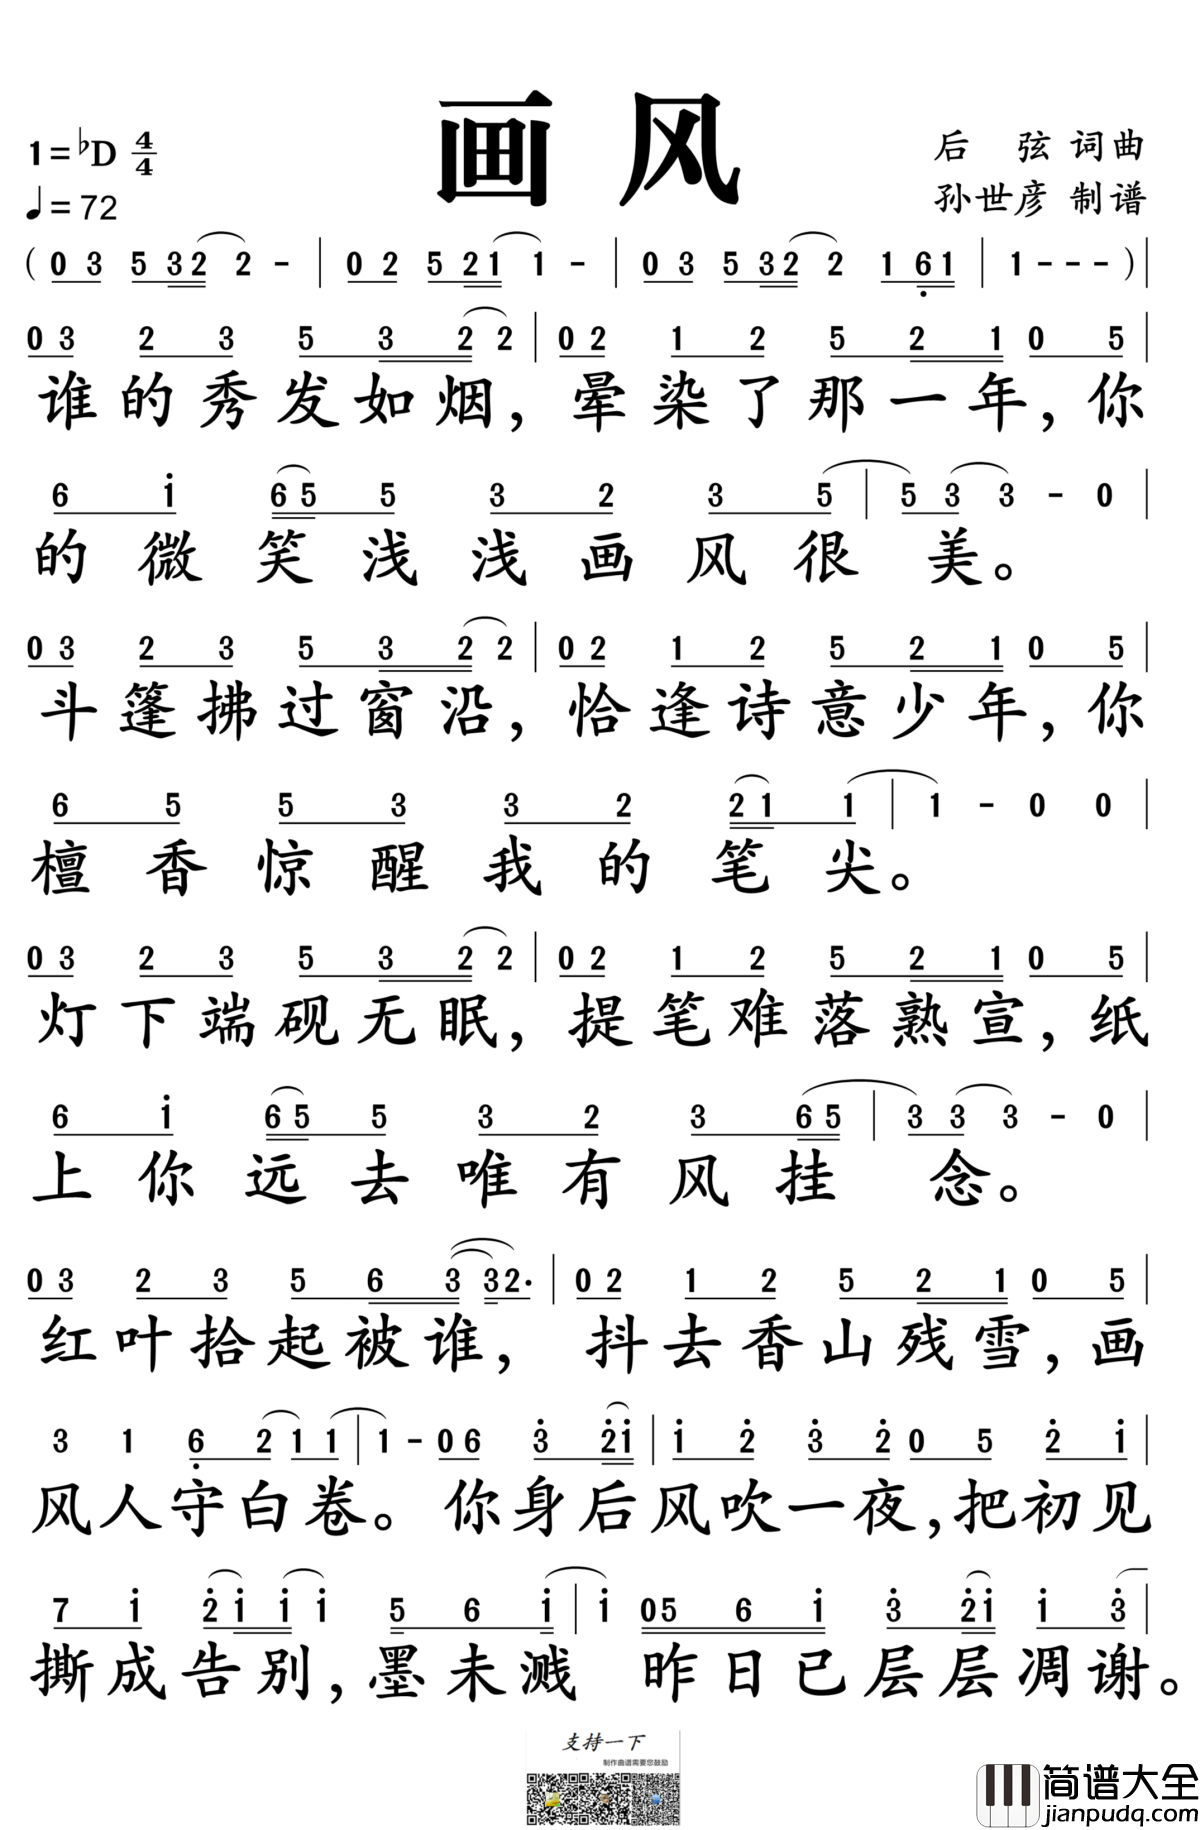 画风
1=♭D 4/4
♩=72
后弦 词曲
孙世彦 制谱
( 0 3 5 3 2 2 - | 0 2 5 2 1 1 - | 0 3 5 3 2 2 1 6̣ 1 | 1 - - - ) |
0 3 2 3 5 3 2 2 | 0 2 1 2 5 2 1 0 5 |
谁的秀发如烟，晕染了那一年，你
6 1̇ 6 5 5 3 2 3 5 | 5 3 3 - 0 |
的微笑浅浅画风很美。
0 3 2 3 5 3 2 2 | 0 2 1 2 5 2 1 0 5 |
斗篷拂过窗沿，恰逢诗意少年，你
6 5 5 3 3 2 2 1 1 | 1 - 0 0 |
檀香惊醒我的笔尖。
0 3 2 3 5 3 2 2 | 0 2 1 2 5 2 1 0 5 |
灯下端砚无眠，提笔难落熟宣，纸
6 1̇ 6 5 5 3 2 3 6 5 | 3 3 3 - 0 |
上你远去唯有风挂念。
0 3 2 3 5 6 3 3 2. | 0 2 1 2 5 2 1 0 5 |
红叶拾起被谁，抖去香山残雪，画
3 1 6̣ 2 1 1 | 1 - 0 6 3̇ 2̇ 1̇ | 1̇ 2̇ 3̇ 2̇ 0 5 2̇ 1̇ |
风人守白卷。你身后风吹一夜，把初见
7 1̇ 2̇ 1̇ 1̇ 1̇ 5 6 1̇ | 1̇ 0 5 6 1̇ 3̇ 2̇ 1̇ 1̇ 3̇ |
撕成告别，墨未溅 昨日已层层凋谢。
支持一下
制作曲谱需要您鼓励
简谱大全
jianpudq.com